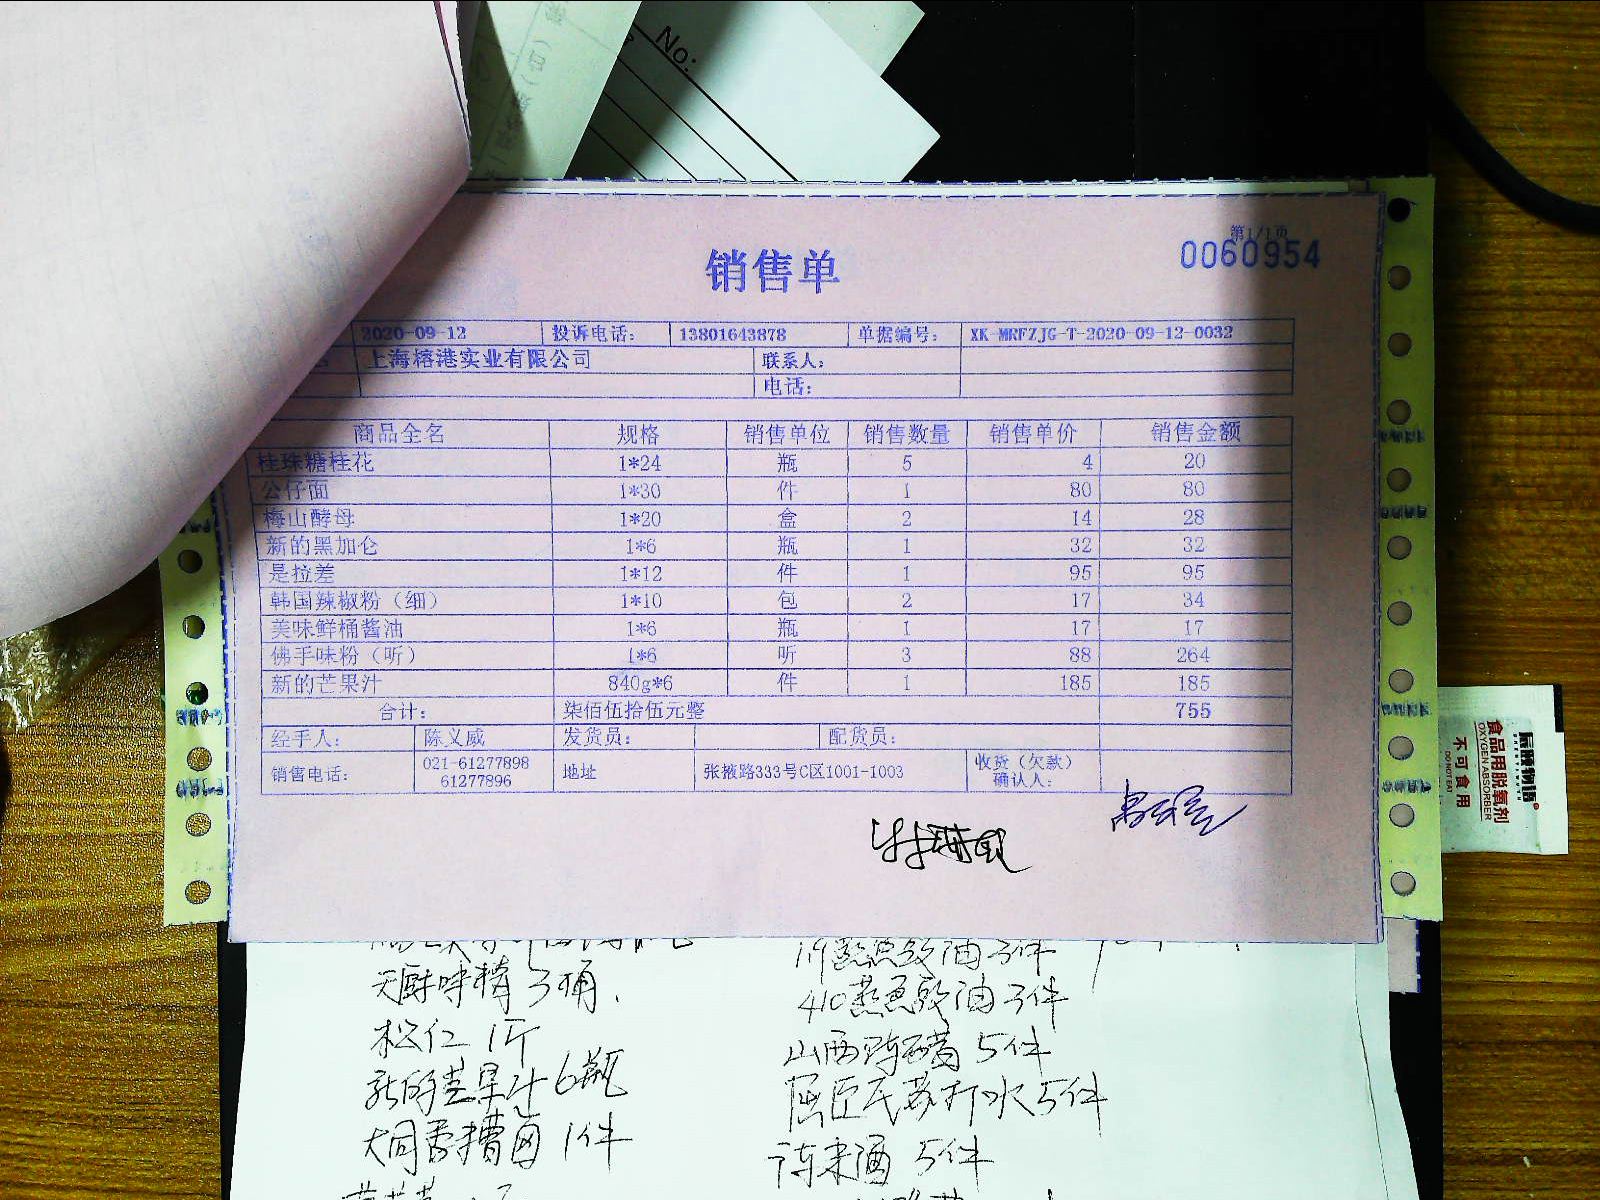 No:
第1/1页
0060954
销售单
2020-09-12 投诉电话: 13801643878 单据编号: XK-MRFZJG-T-2020-09-12-0032
上海榕港实业有限公司 联系人:
电话:
商品全名 规格 销售单位 销售数量 销售单价 销售金额
桂珠糖桂花 1*24 瓶 5 4 20
公仔面 1*30 件 1 80 80
梅山酵母 1*20 盒 2 14 28
新的黑加仑 1*6 瓶 1 32 32
是拉差 1*12 件 1 95 95
韩国辣椒粉（细） 1*10 包 2 17 34
美味鲜桶酱油 1*6 瓶 1 17 17
佛手味粉（听） 1*6 听 3 88 264
新的芒果汁 840g*6 件 1 185 185
合计: 柒佰伍拾伍元整 755
经手人: 陈义威 发货员: 配货员:
销售电话: 021-61277898 61277896 地址 张掖路333号C区1001-1003 收货（欠款）确认人:
食品用脱氧剂
OXYGEN ABSORBER
不可食用
DO NOT EAT
天厨味精 3桶
松仁 1斤
新的芒果汁 6瓶
大同香糟卤 1件
蒸鱼豉油 3件
410蒸鱼豉油 3件
山西陈醋 5件
屈臣氏苏打水 5件
5件